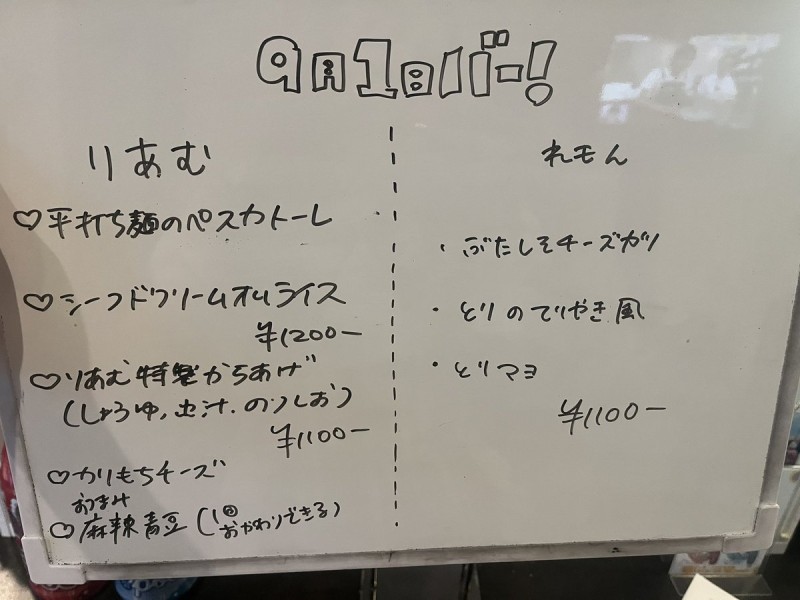 9月1日バー!
りあむ
♡平打ち麺のペスカトーレ
♡シーフードクリームオムライス
¥1200ー
♡りあむ特製からあげ
(しょうゆ,出汁.のりしお)
¥1100ー
♡かりもちチーズ
おつまみ
♡麻辣青豆(1回おかわりできる)
れもん
・ぶたしそチーズカツ
・とりのてりやき風
・とりマヨ
¥1100ー